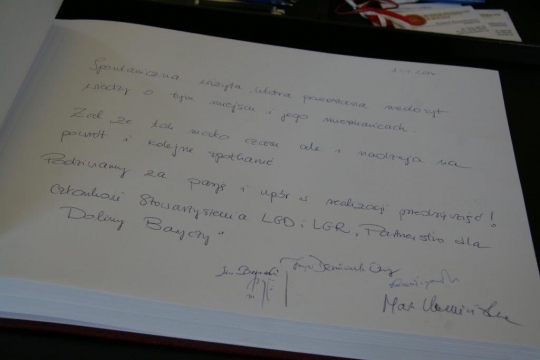 Spontaniczna wizyta, która pozostawia niedosyt
wiedzy o tym miejscu i jego mieszkańcach.
Żal, że tak mało czasu ale i nadzieja na
powrót i kolejne spotkanie
Podziwiamy za pasję i upór w realizacji przedsięwzięć!
Członkowie Stowarzyszenia LGD i LGR "Partnerstwo dla
Doliny Baryczy"